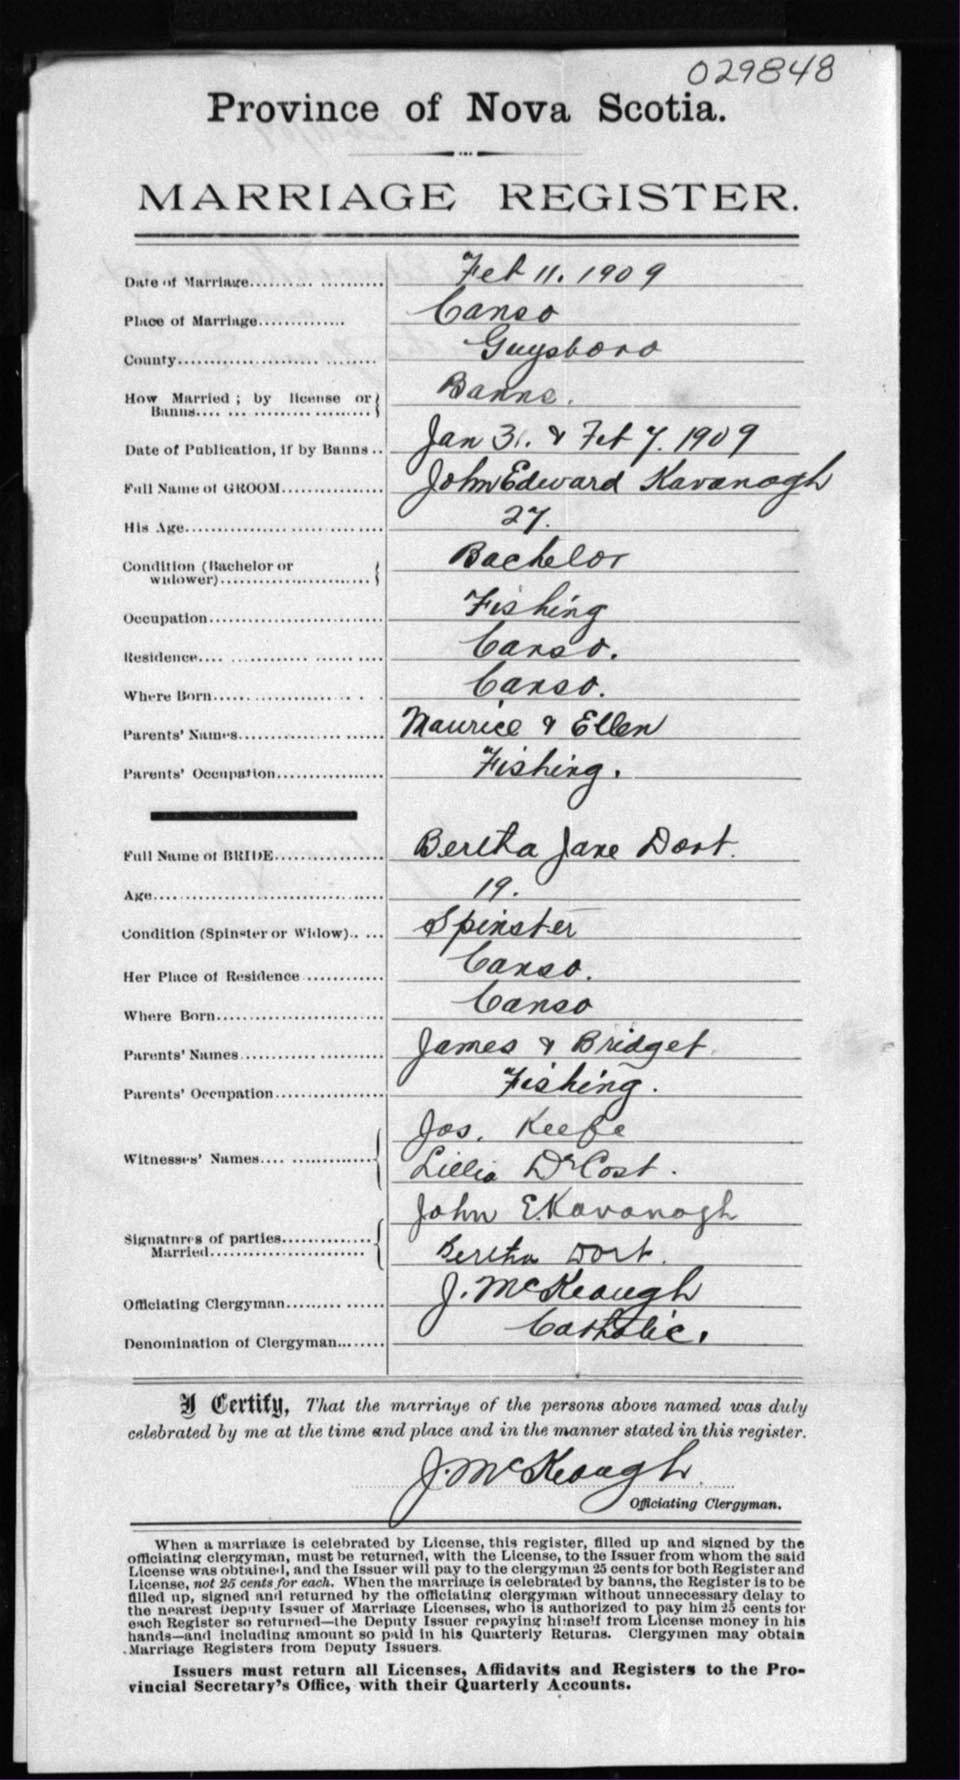 029848
Province of Nova Scotia.
MARRIAGE REGISTER.
Date of Marriage.................... Feb 11. 1909
Place of Marriage.............. Canso
County.......................... Guysboro
How Married ; by license or
Banns........................ Banns.
Date of Publication, if by Banns .. Jan 31. & Feb 7. 1909
Full Name of GROOM............... John Edward Kavanagh
His Age.............................. 27.
Condition (Bachelor or
widower)....................... Bachelor
Occupation........................... Fishing
Residence.... ............. ...... .... Canso.
Where Born........................ Canso.
Parents' Names...................... Maurice & Ellen
Parents' Occupation................. Fishing.
Full Name of BRIDE................. Bertha Jane Dort.
Age.................................... 19.
Condition (Spinster or Widow).. ... Spinster
Her Place of Residence ............ Canso.
Where Born.......................... Canso
Parents' Names....................... James & Bridget
Parents' Occupation................. Fishing.
Jos. Keefe
Witnesses' Names.... .............
Lillia DrCost.
John E. Kavanagh
Signatures of parties..............
Married........................ Bertha Dort.
Officiating Clergyman.............. J. McKeough
Denomination of Clergyman......... Catholic.
I Certify, That the marriage of the persons above named was duly
celebrated by me at the time and place and in the manner stated in this register.
J. McKeough.
Officiating Clergyman.
When a marriage is celebrated by License, this register, filled up and signed by the
officiating clergyman, must be returned, with the License, to the Issuer from whom the said
License was obtained, and the Issuer will pay to the clergyman 25 cents for both Register and
License, not 25 cents for each. When the marriage is celebrated by banns, the Register is to be
filled up, signed and returned by the officiating clergyman without unnecessary delay to
the nearest Deputy Issuer of Marriage Licenses, who is authorized to pay him 25 cents for
each Register so returned—the Deputy Issuer repaying himself from License money in his
hands—and including amount so paid in his Quarterly Returns. Clergymen may obtain
Marriage Registers from Deputy Issuers.
Issuers must return all Licenses, Affidavits and Registers to the Pro-
vincial Secretary's Office, with their Quarterly Accounts.